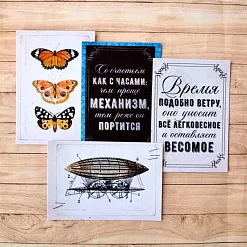 Со счастьем
КАК С ЧАСАМИ:
чем проще
МЕХАНИЗМ,
тем реже он
ПОРТИТСЯ
Время
ПОДОБНО ВЕТРУ,
оно уносит
ВСЁ ЛЕГКОВЕСНОЕ
и оставляет
ВЕСОМОЕ